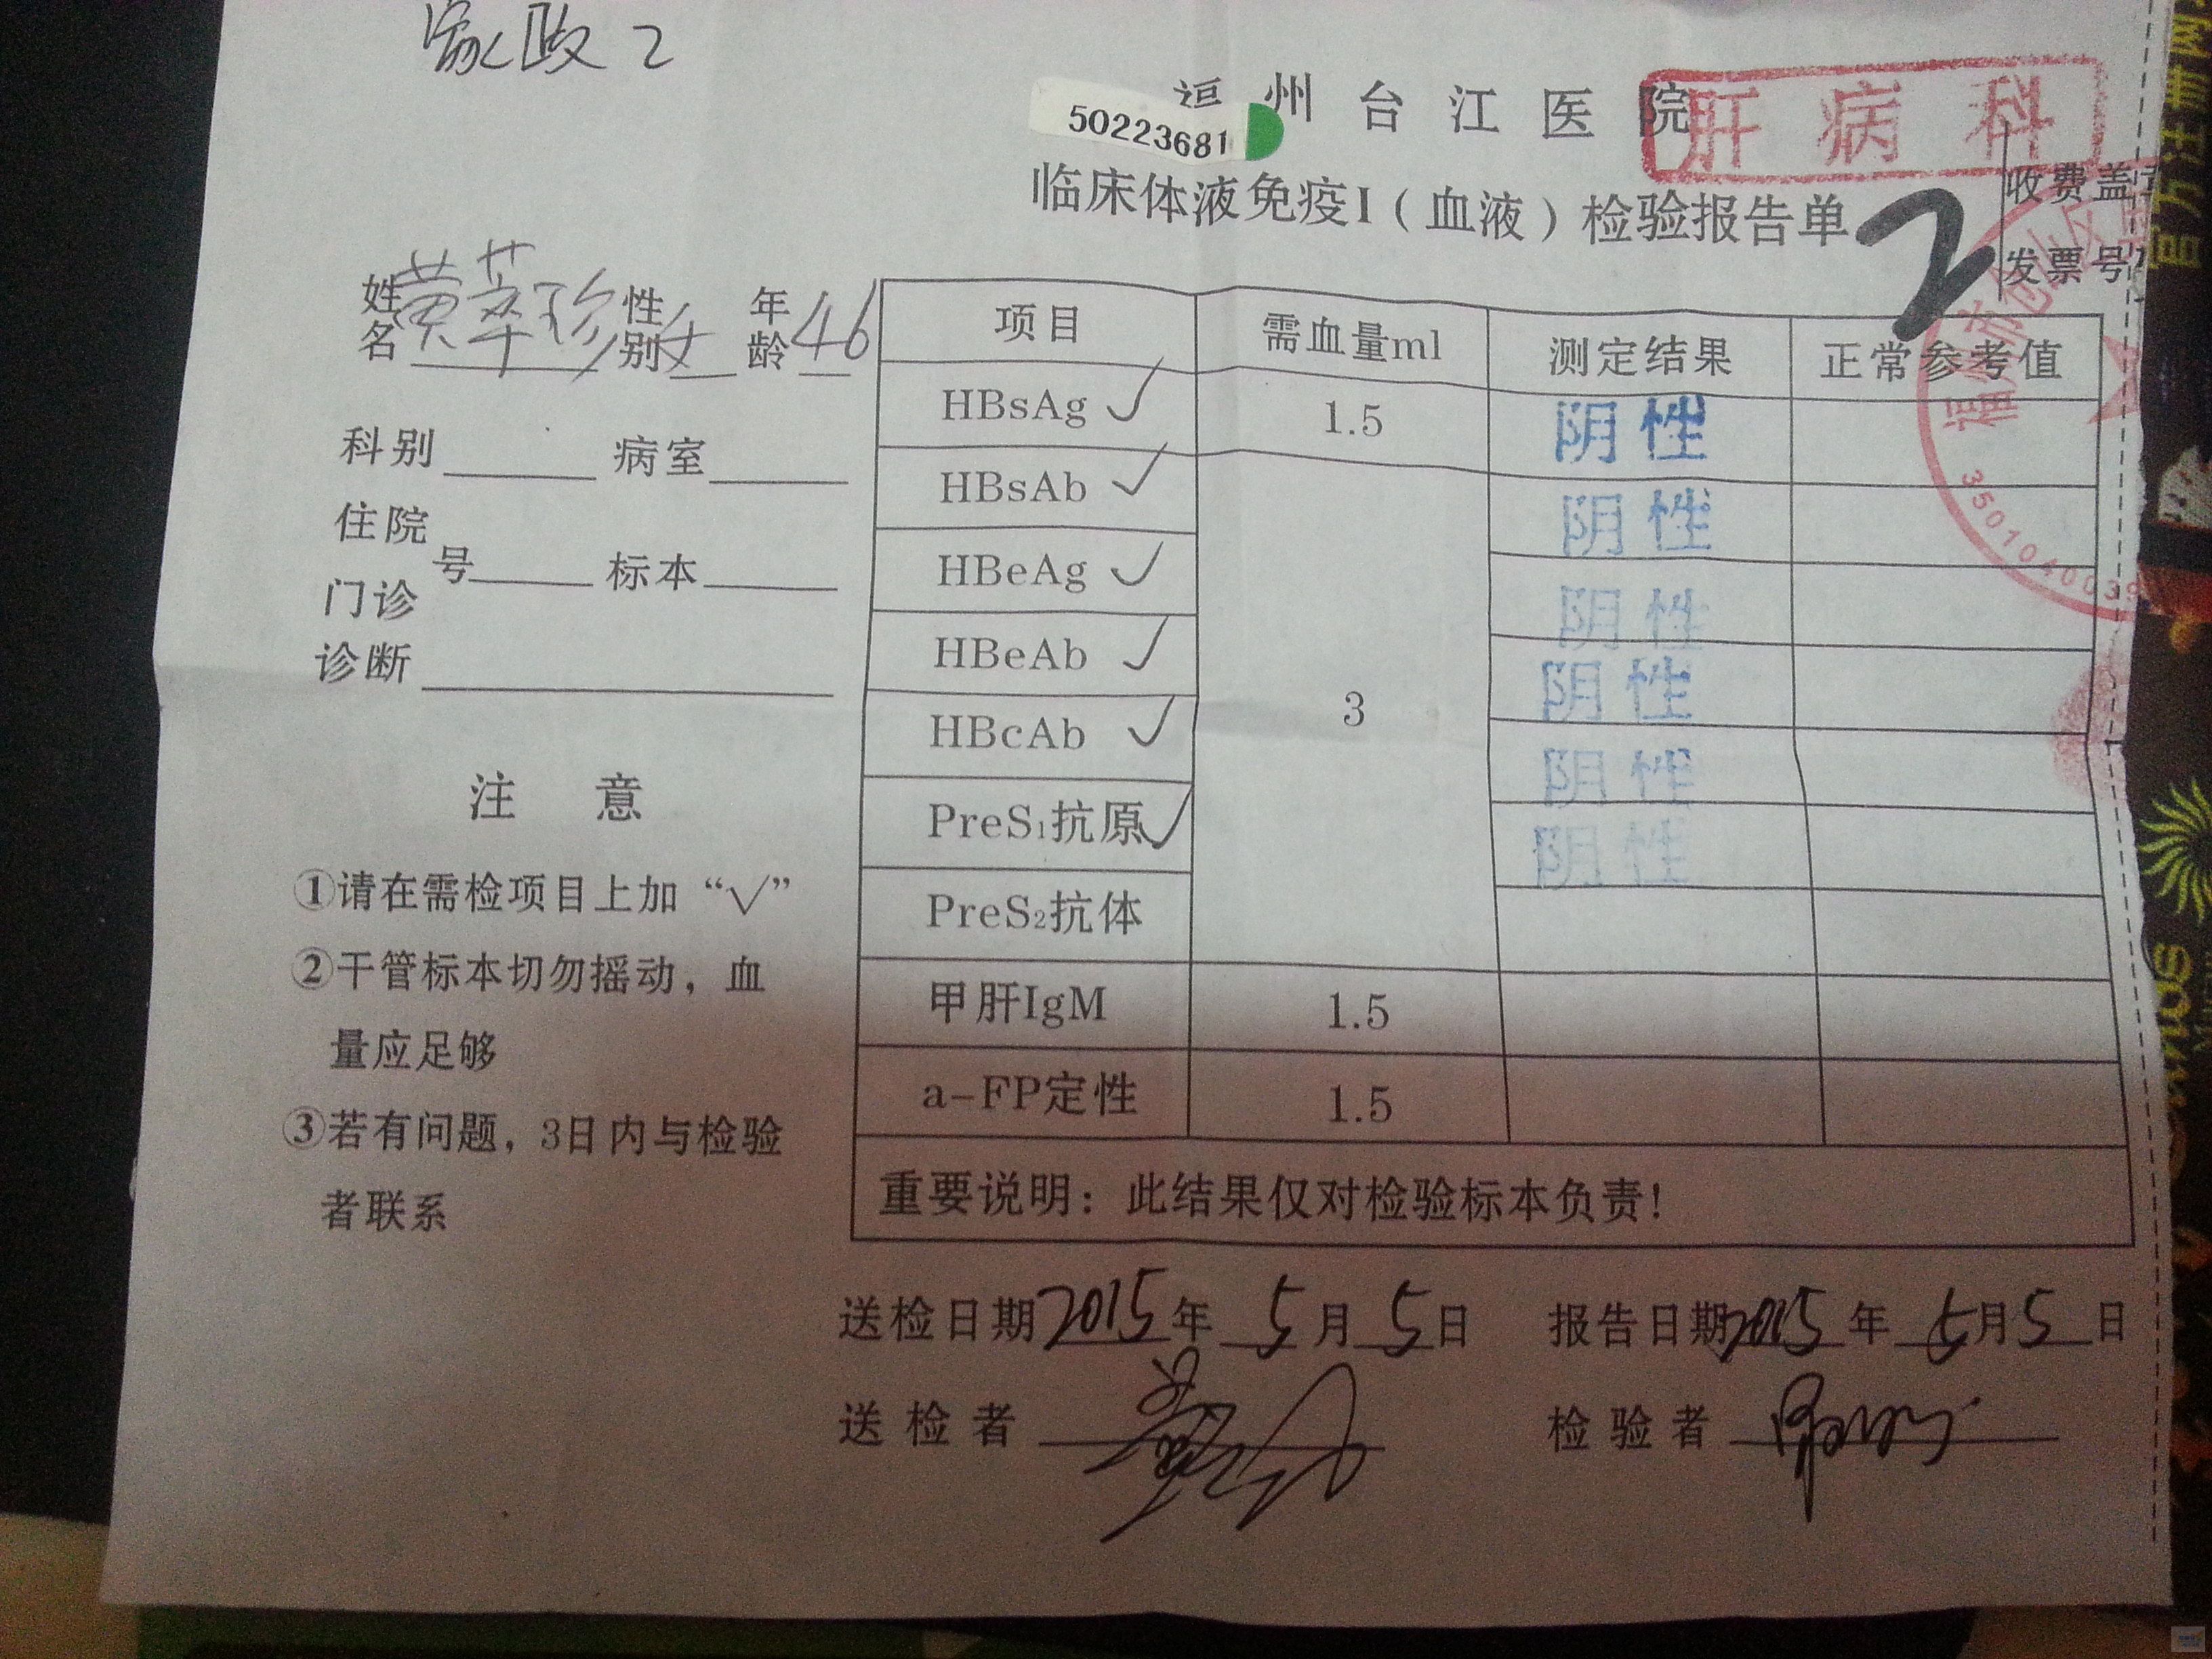 家政2
50223681
州台江医院
肝病科
临床体液免疫I(血液)检验报告单
2
收费盖
发票号
姓名 黄萃珍 性别 女 年龄 46
科别 病室
住院
门诊 号 标本
诊断
注 意
①请在需检项目上加“√”
②干管标本切勿摇动，血
量应足够
③若有问题，3日内与检验
者联系
项目 需血量ml 测定结果 正常参考值
HBsAg √ 1.5 阴性
HBsAb √ 3 阴性
HBeAg √ 阴性
HBeAb √ 阴性
HBcAb √ 阴性
PreS₁抗原 √ 阴性
PreS₂抗体
甲肝IgM 1.5
a-FP定性 1.5
重要说明：此结果仅对检验标本负责！
送检日期 2015年5月5日 报告日期 2015年5月5日
送检者 检验者
3501040039
官方注册网